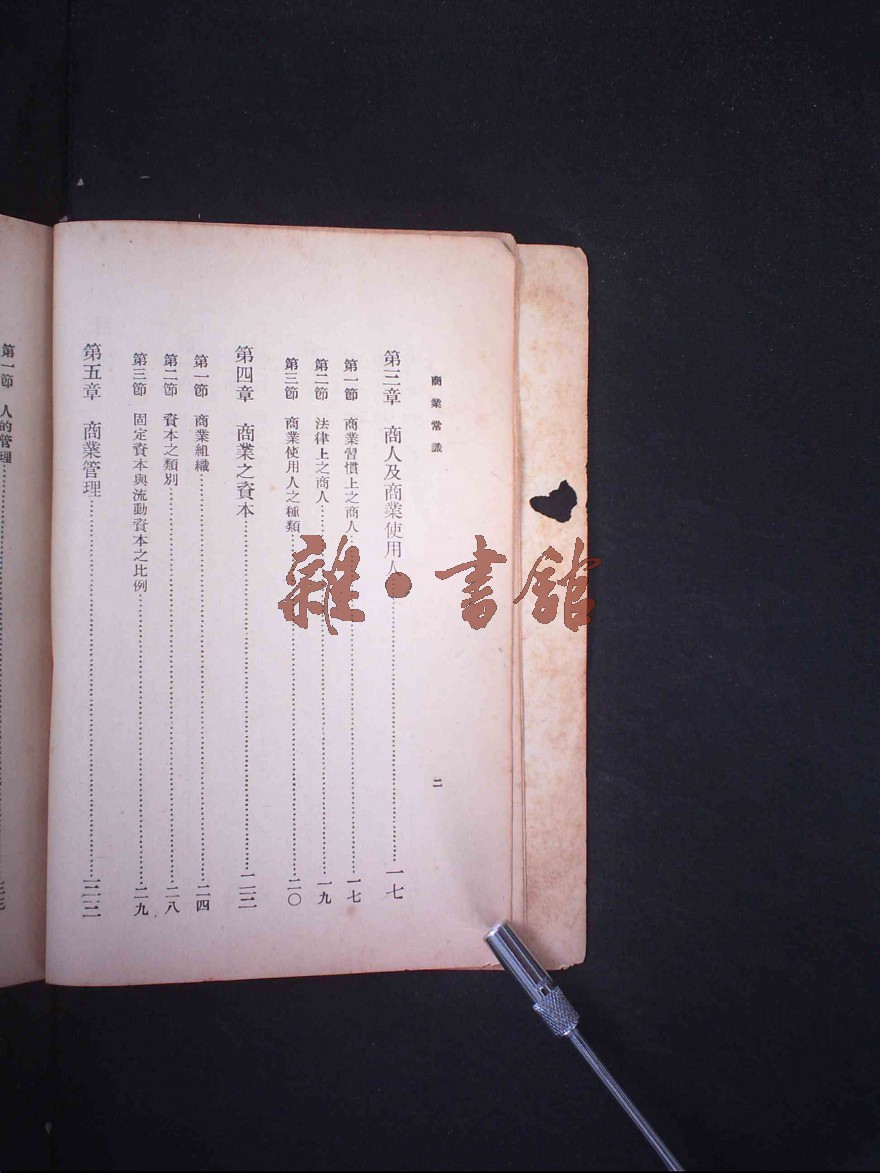 商業常識 二
第三章 商人及商業使用人……一七
第一節 商業習慣上之商人……一七
第二節 法律上之商人……一九
第三節 商業使用人之種類……二〇
第四章 商業之資本……二三
第一節 商業組織……二四
第二節 資本之類別……二八
第三節 固定資本與流動資本之比例……二九
第五章 商業管理……
第一節 人的管理……
雜·書館